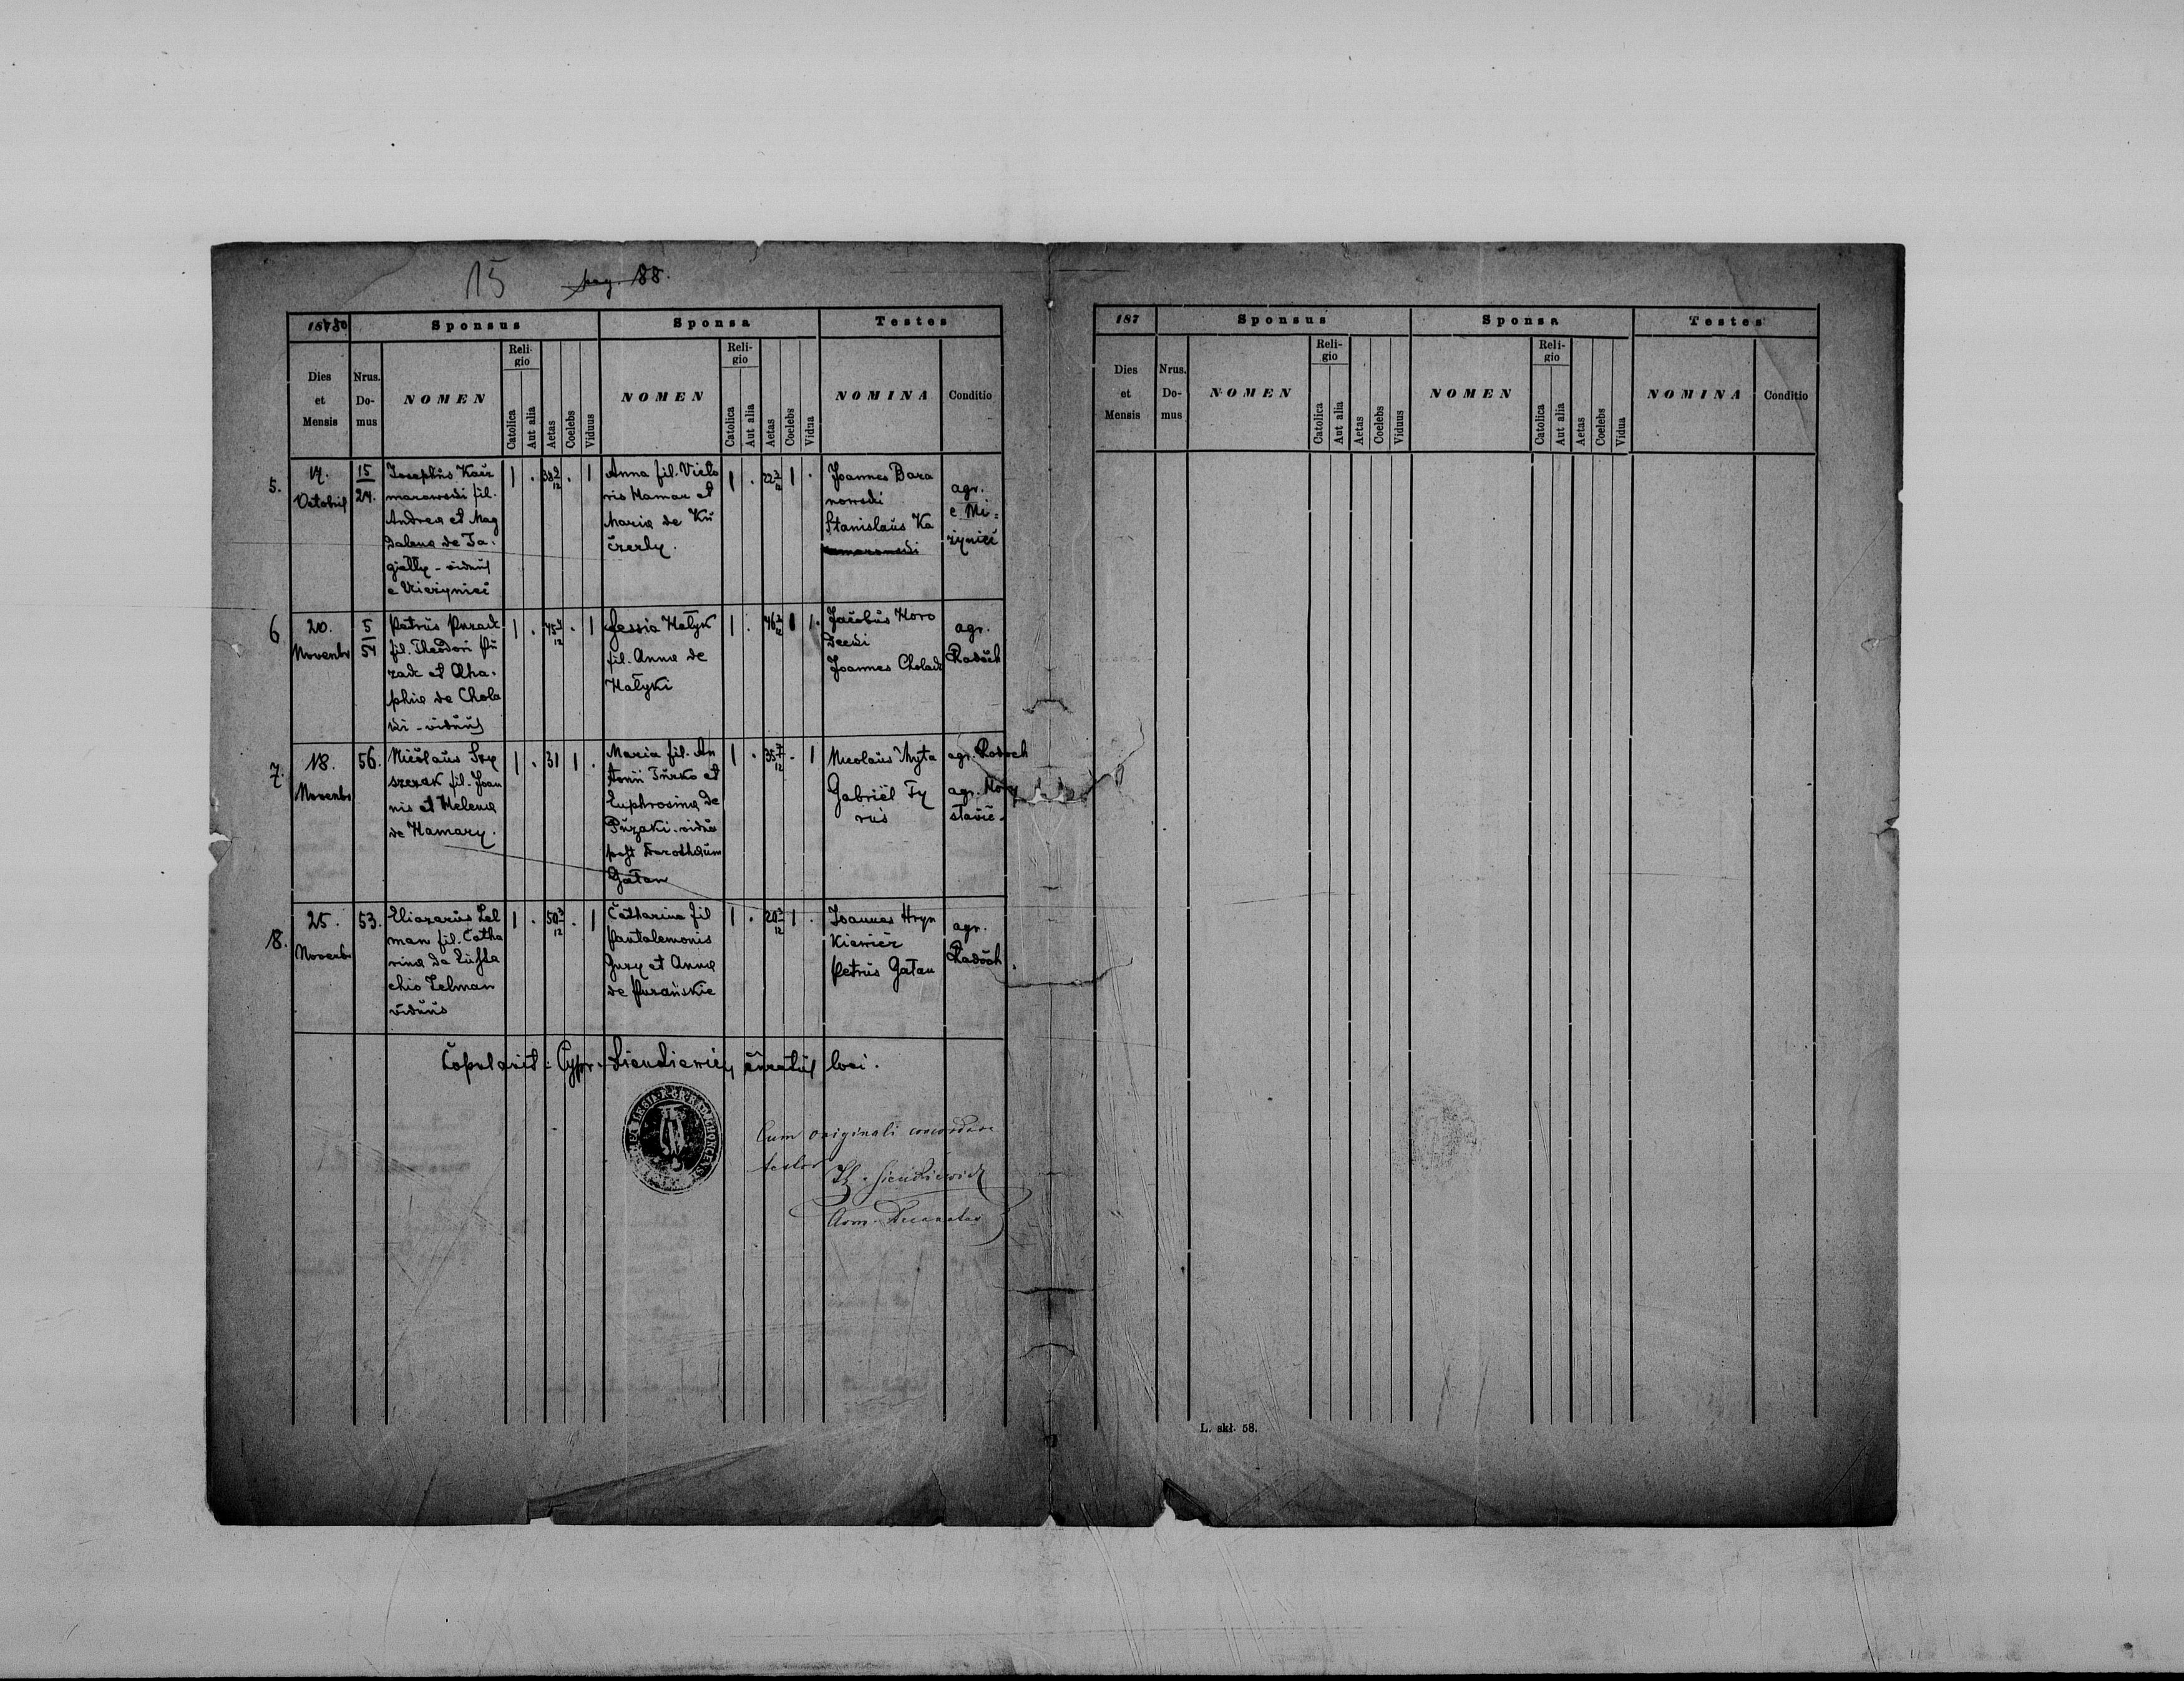 15 pag. 88.
1880 Sponsus Sponsa Testes
Dies et Mensis
Nrus. Do- mus
NOMEN
Reli- gio
Catolica
Aut alia
Aetas
Coelebs
Viduus
NOMEN
Reli- gio
Catolica
Aut alia
Aetas
Coelebs
Vidua
NOMINA
Conditio
5.
Octobris
15
24.
Josephus Kacz
marowski fil.
Andrea et Mag
dalena de Ja-
giełły - viduus
e
1 . . 1
Anna fil. Victo
ris Hamar et
Maria de Ku
czerby.
1 . 1 .
Joannes Bara
nowski
Stanislaus Ka
agr.
e Mi-
żyniec
6
20.
Novembr
5
54
Petrus Puzak
fil. Theodori Pu
zak et Aha-
phia de Chola
ki - viduus
1 . 45 3/12 . 1
Hessia Hałyk
fil. Anna de
Hałyki
1 . 1 .
Jacobus Horo
decki
Joannes Cholak
agr.
Radoch
7.
18.
Novembr
56.
Nicolaus Szy
szczak fil. Joan
nis et Helena
de Hamary.
1 . 31 1 .
Maria fil. An
tonii Turko et
Euphrosina de
Puzaki - vidua
post Dorotheum
Gałan
1 . 35 7/12 . 1
Nicolaus Myta
Gabriel Ty
rus
agr. Radoch
agr. Hoły
8.
25.
Novembr
53.
Eliazarus Lel
man fil. Catha
rina de Eusta
chio Lelman
viduus
1 . 50 3/12 . 1
Catharina fil
Pantalemonis
Gury et Anna
de
1 . 20 3/12 1 .
Joannes Hryn
kiewicz
Petrus Gałan
agr.
Radoch
Copulavit: Cypr. Sieńkiewicz curatus loci.
Cum originali concordare
testor
Sieńkiewicz
Adm. Decanatus
187 Sponsus Sponsa Testes
Dies et Mensis
Nrus. Do- mus
NOMEN
Reli- gio
Catolica
Aut alia
Aetas
Coelebs
Viduus
NOMEN
Reli- gio
Catolica
Aut alia
Aetas
Coelebs
Vidua
NOMINA
Conditio
L. skł. 58.